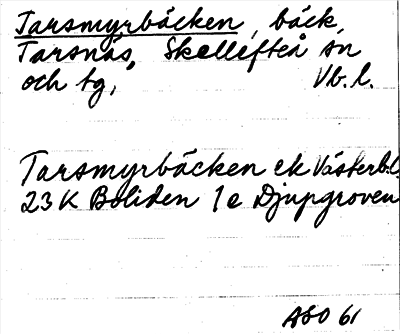 Tarsmyrbäcken, bäck,
Tarsnäs, Skellefteå sn
och tg, Vb. l.
Tarsmyrbäcken ek Västerb.l.
23 K Boliden 1e Djupgroven
ASO 61